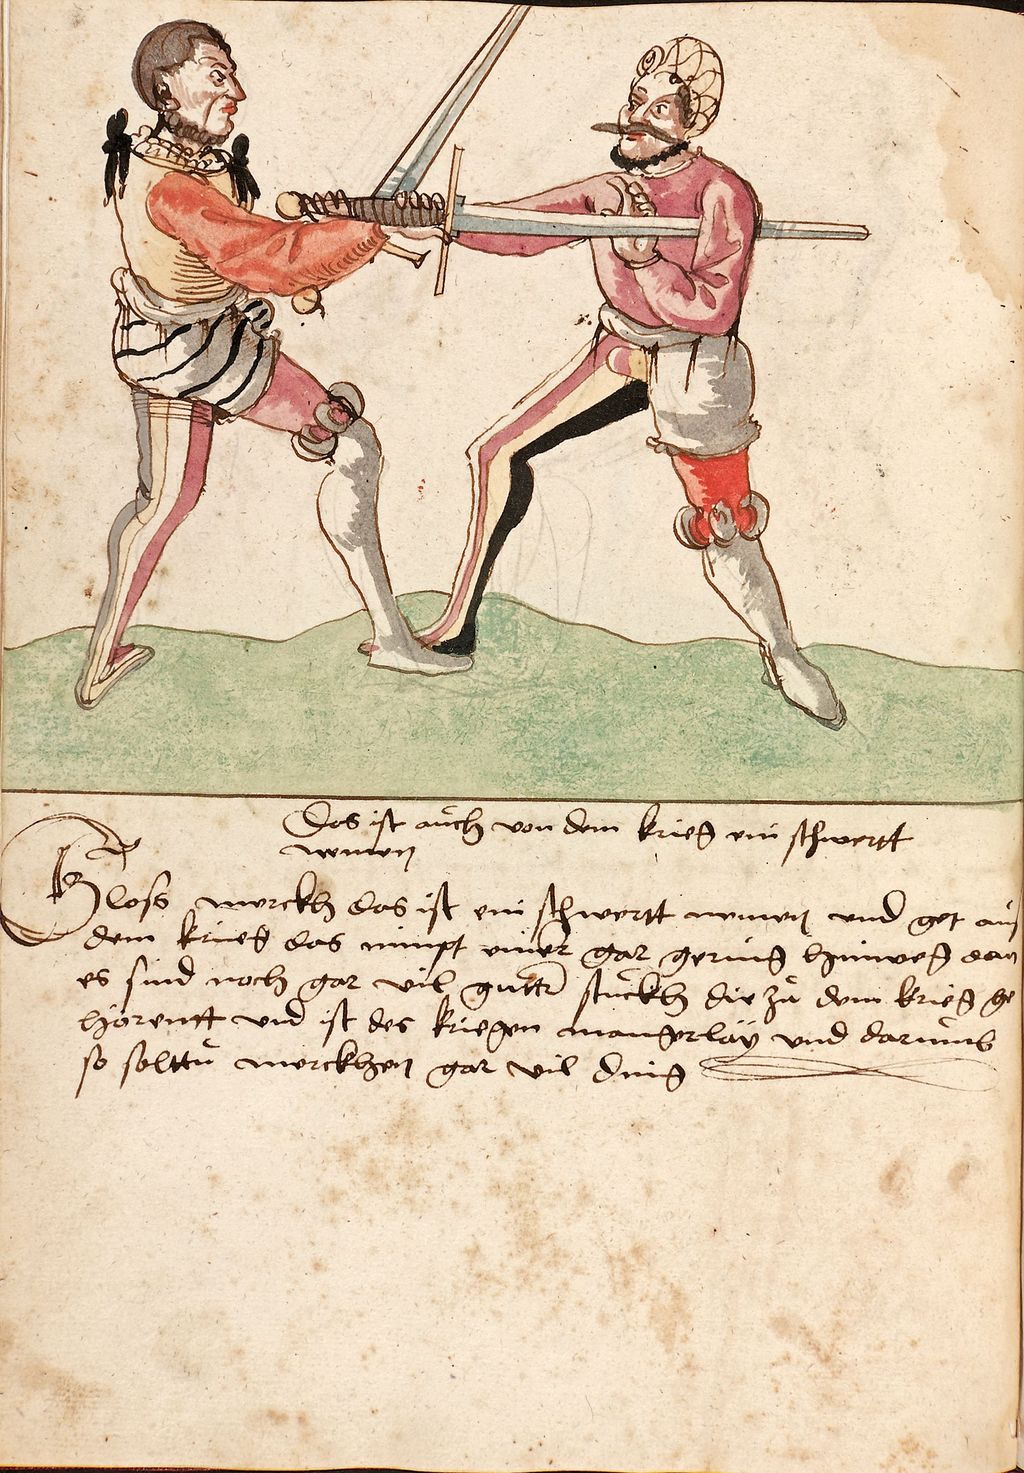 Das ist aüch von dem krieg ein schwertt
nemen
Gloss merckh das ist ein schwertt nemen vnd get aus
dem krieg das nimpt einer gar gering hinweg dan
es sind noch gar vil gutter stückh die zü dem krieg ge
hörentt vnd ist des kriegen mangerlaÿ vnd darümb
so solttü merckhen gar vil ding